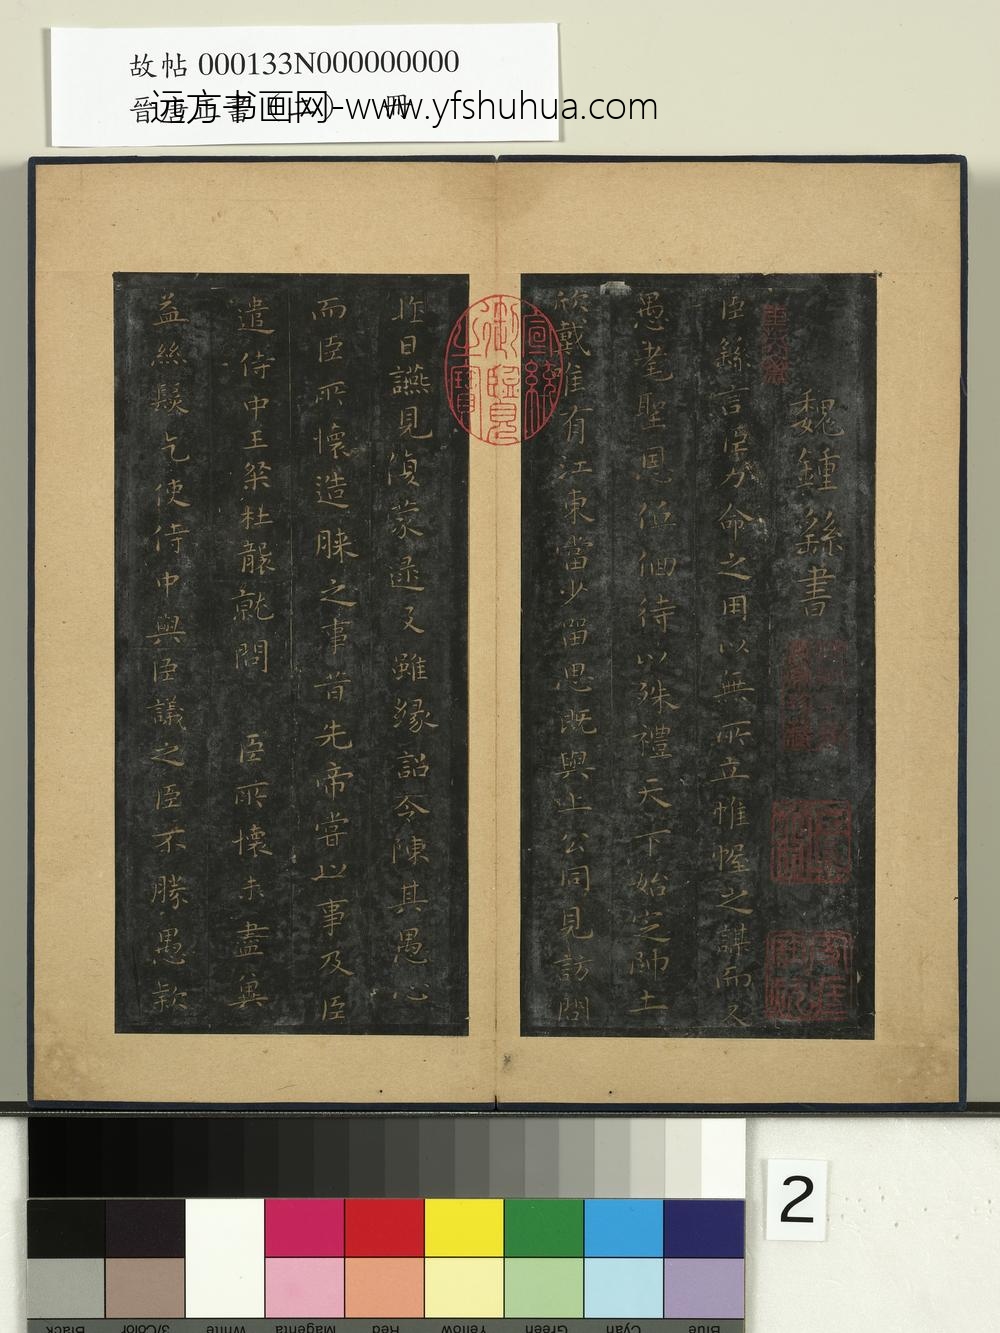 故帖 000133N000000000
远方书画网-www.yfshuhua.com
魏鍾繇書
臣繇言臣力命之用以無所立帷幄之謀而又
愚耄聖恩低佪待以殊禮天下始定師土
欣戴唯有江東當少留思既與上公同見訪問
昨日讌見復蒙逮及雖緣詔令陳其愚心
而臣所懷造膝之事昔先帝嘗以事及臣
遣侍中王粲杜襲就問 臣所懷未盡冀
益絲髮乞使侍中與臣議之臣不勝愚款
宣統御覽之寶
2
Black
3/Color
White
Magenta
Red
Yellow
Green
Cyan
Blue